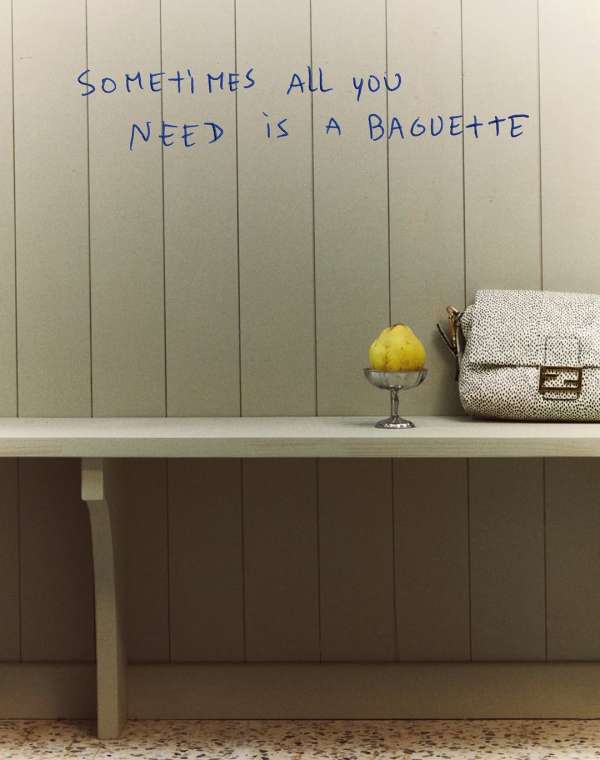 SOMETIMES ALL YOU
NEED IS A BAGUETTE